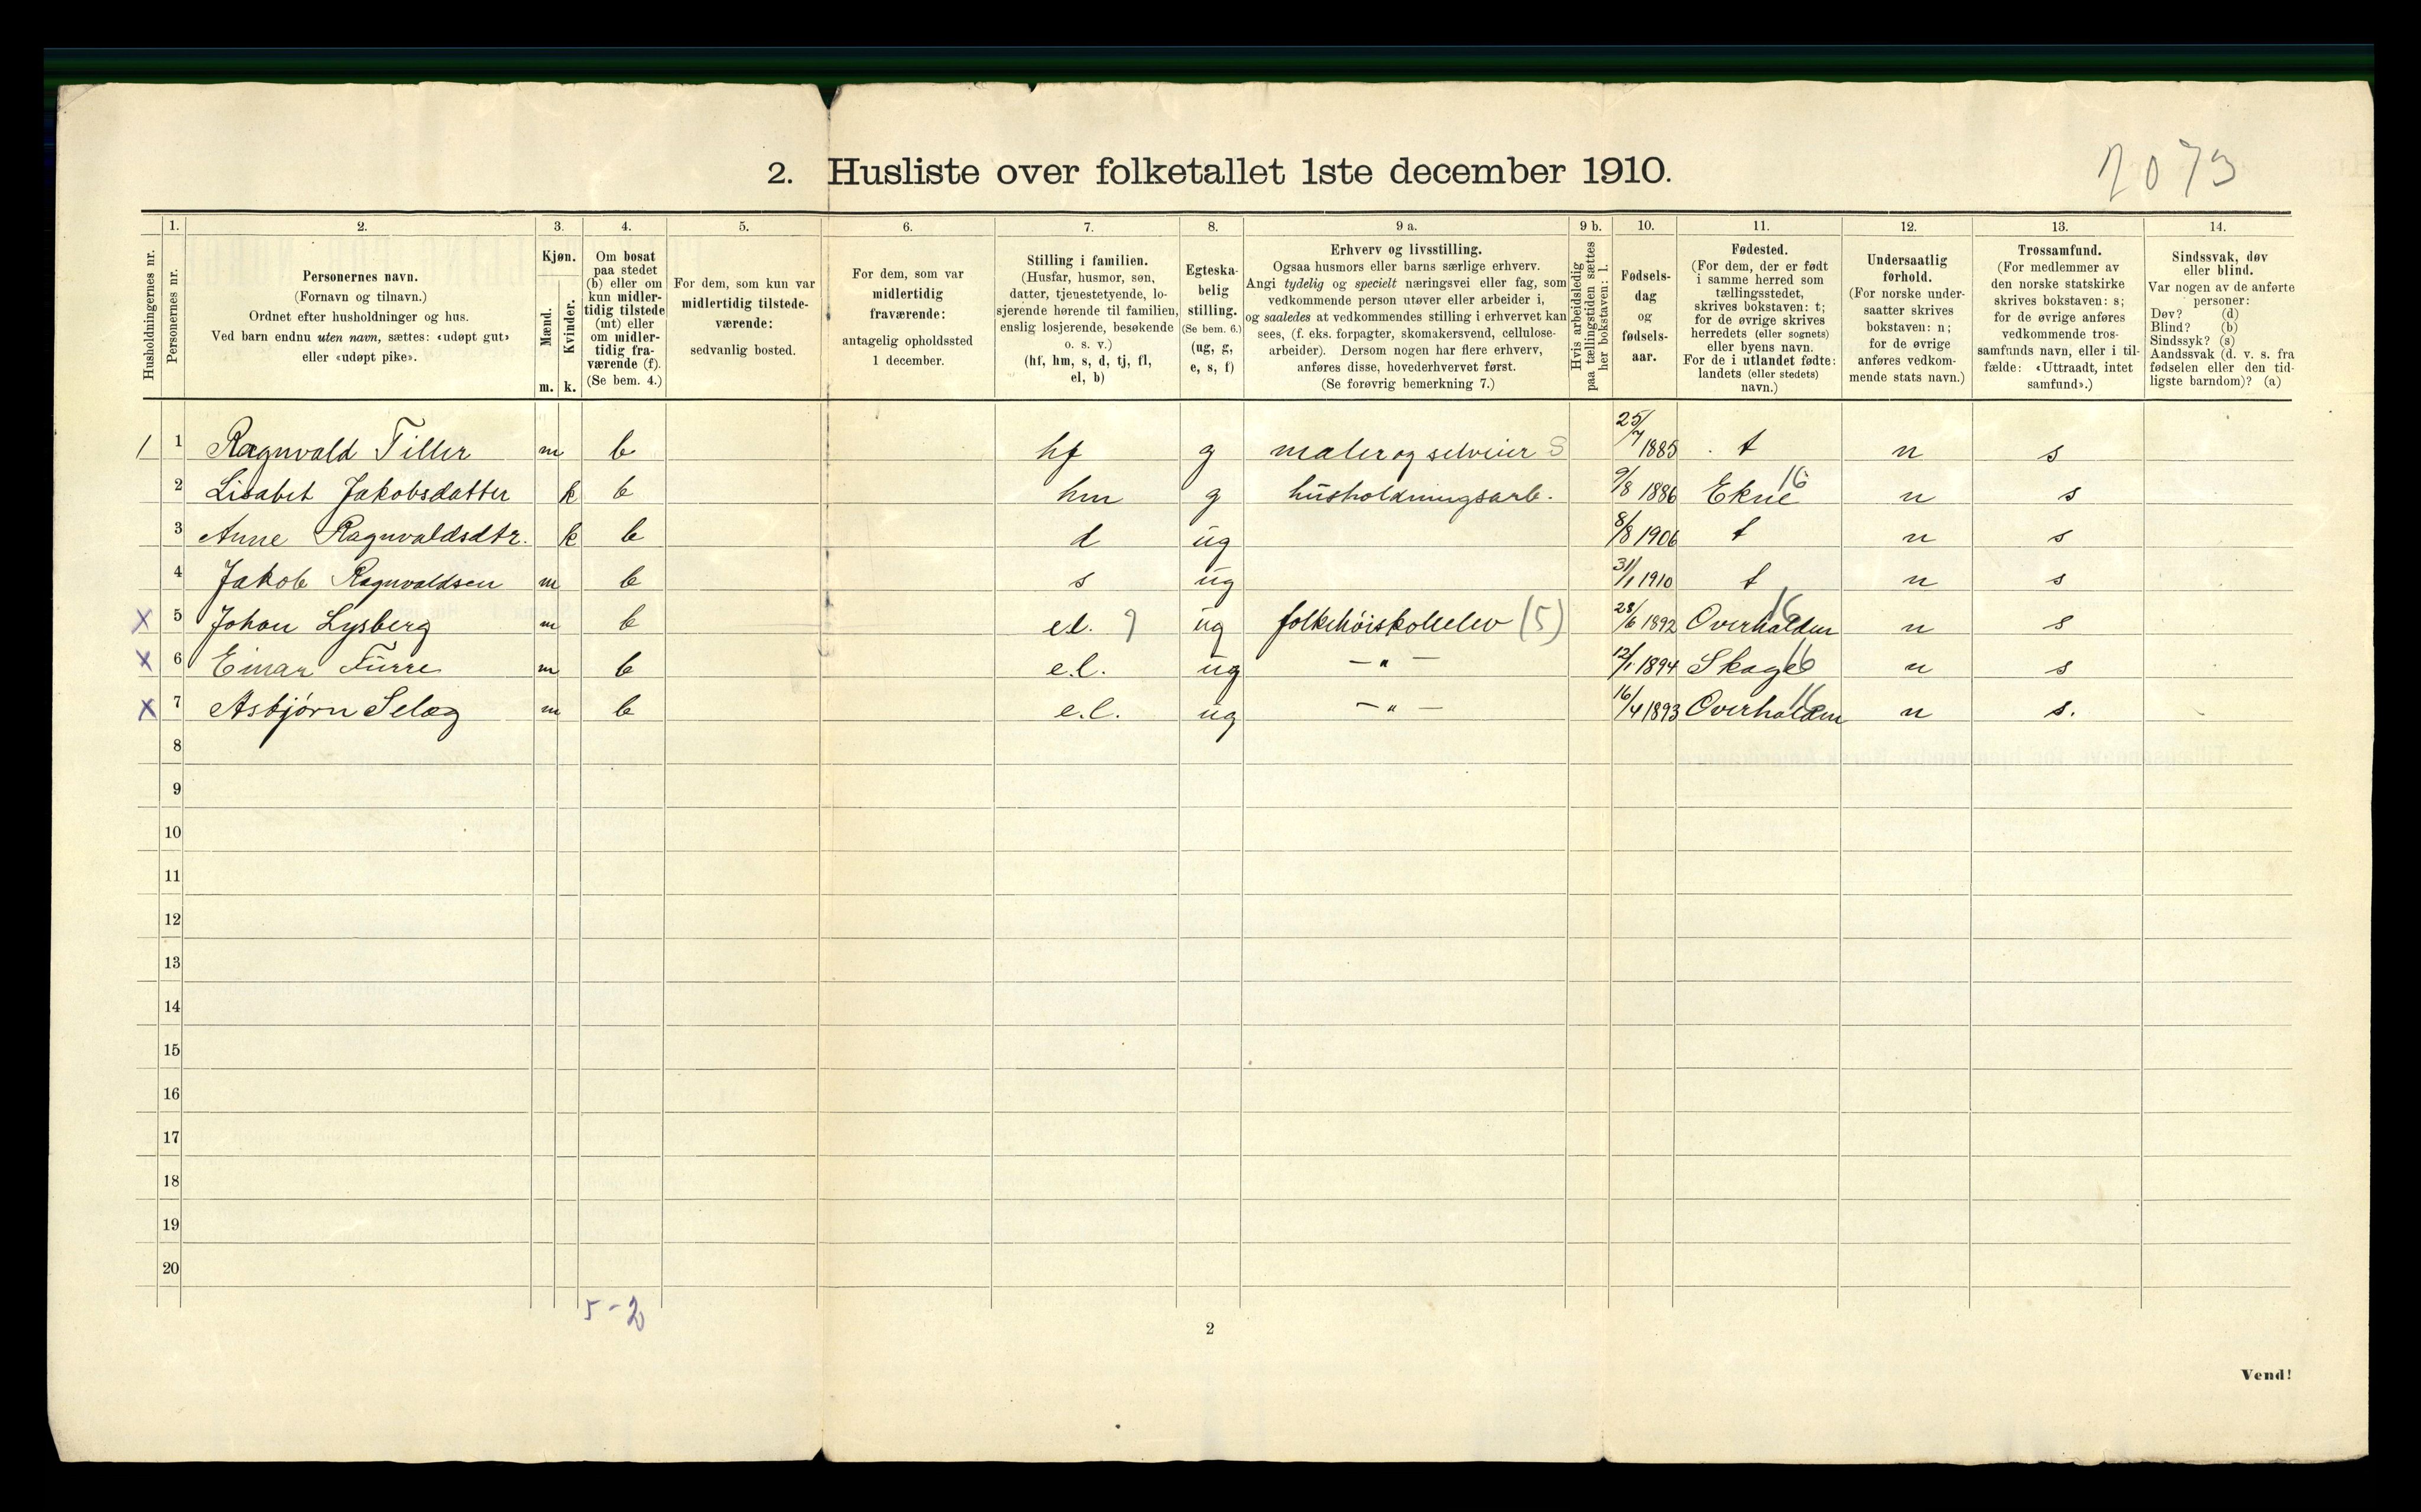 2. Husliste over folketallet 1ste december 1910.
2073
1. 2. 3. 4. 5. 6. 7. 8. 9 a. 9 b. 10. 11. 12. 13. 14.
Husholdningernes nr.
Personernes nr.
Personernes navn.
(Fornavn og tilnavn.)
Ordnet efter husholdninger og hus.
Ved barn endnu uten navn, sættes: «udøpt gut»
eller «udøpt pike».
Kjøn.
Mænd.
Kvinder.
m. k.
Om bosat
paa stedet
(b) eller om
kun midler-
tidig tilstede
(mt) eller
om midler-
tidig fra-
værende (f).
(Se bem. 4.)
For dem, som kun var
midlertidig tilstede-
værende:
sedvanlig bosted.
For dem, som var
midlertidig
fraværende:
antagelig opholdssted
1 december.
Stilling i familien.
(Husfar, husmor, søn,
datter, tjenestetyende, lo-
sjerende hørende til familien,
enslig losjerende, besøkende
o. s. v.)
(hf, hm, s, d, tj, fl,
el, b)
Egteska-
belig
stilling.
(Se bem. 6.)
(ug, g,
e, s, f)
Erhverv og livsstilling.
Ogsaa husmors eller barns særlige erhverv.
Angi tydelig og specielt næringsvei eller fag, som
vedkommende person utøver eller arbeider i,
og saaledes at vedkommendes stilling i erhvervet kan
sees, (f. eks. forpagter, skomakersvend, cellulose-
arbeider). Dersom nogen har flere erhverv,
anføres disse, hovederhvervet først.
(Se forøvrig bemerkning 7.)
Hvis arbeidsledig
paa tællingstiden sættes
her bokstaven: l.
Fødsels-
dag
og
fødsels-
aar.
Fødested.
(For dem, der er født
i samme herred som
tællingsstedet,
skrives bokstaven: t;
for de øvrige skrives
herredets (eller sognets)
eller byens navn.
For de i utlandet fødte:
landets (eller stedets)
navn.)
Undersaatlig
forhold.
(For norske under-
saatter skrives
bokstaven: n;
for de øvrige
anføres vedkom-
mende stats navn.)
Trossamfund.
(For medlemmer av
den norske statskirke
skrives bokstaven: s;
for de øvrige anføres
vedkommende tros-
samfunds navn, eller i til-
fælde: «Uttraadt, intet
samfund».)
Sindssvak, døv
eller blind.
Var nogen av de anførte
personer:
Døv? (d)
Blind? (b)
Sindssyk? (s)
Aandssvak (d. v. s. fra
fødselen eller den tid-
ligste barndom)? (a)
1 1 Ragnvald Tiller m b hf g maler og selveier S 25/7 1885 t n s
2 Lisabet Jakobsdatter k b hm g husholdningsarb. 9/8 1886 Ekne 16 n s
3 Anne Ragnvaldsdtr. k b d ug 8/8 1906 t n s
4 Jakob Ragnvaldsen m b s ug 31/1 1910 t n s
x 5 Johan Lysberg m b e.l. ug folkehøiskoleelev (5) 28/6 1892 Overhalden 16 n s
x 6 Einar Furre m b e.l. ug — " — 12/1 1894 Skage 16 n s
x 7 Asbjørn Selæg m b e.l. ug — " — 16/4 1893 Overhalden 16 n s.
8
9
10
11
12
13
14
15
16
17
18
19
20
5-2
2
Vend!